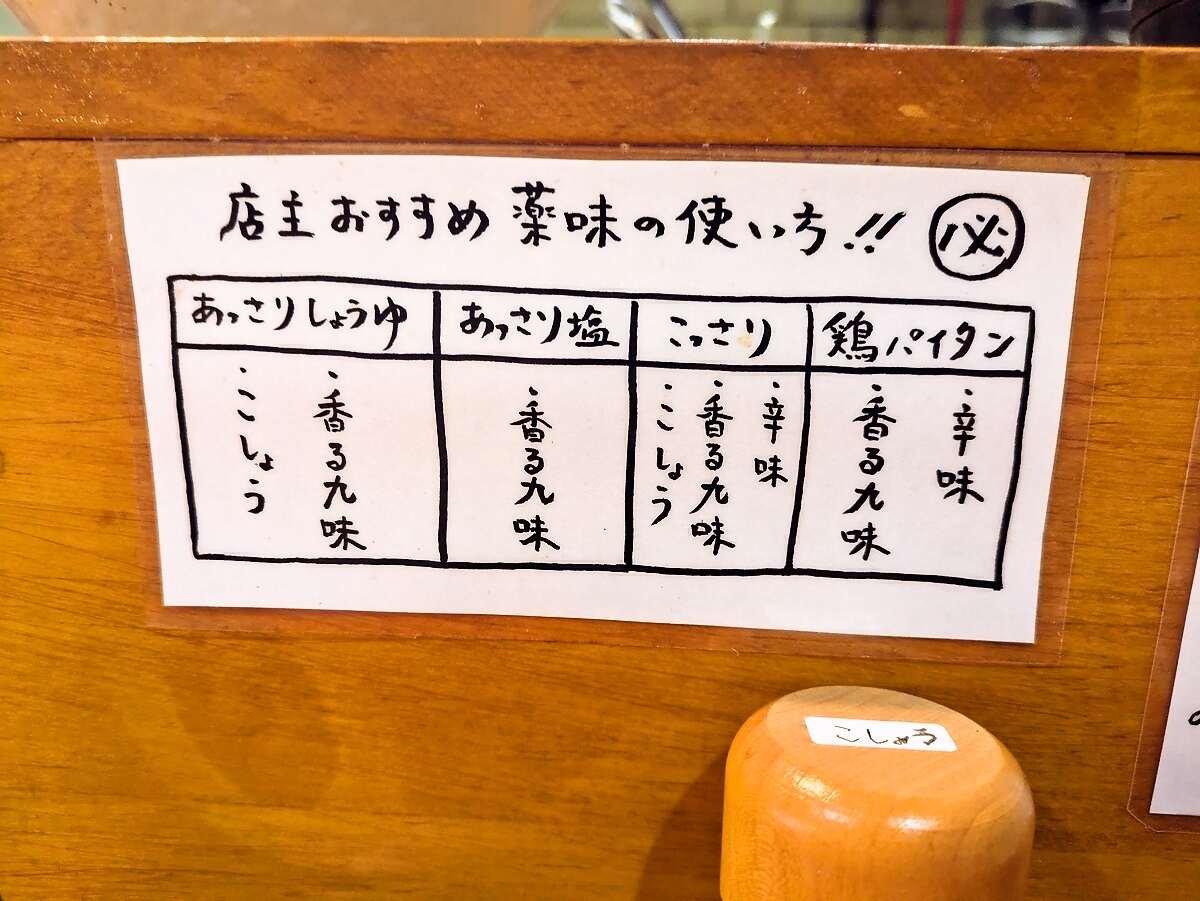 店主おすすめ薬味の使い方!! 必
あっさりしょうゆ
・香る九味
・こしょう
あっさり塩
・香る九味
こっさり
・辛味
・香る九味
・こしょう
鶏パイタン
・辛味
・香る九味
こしょう